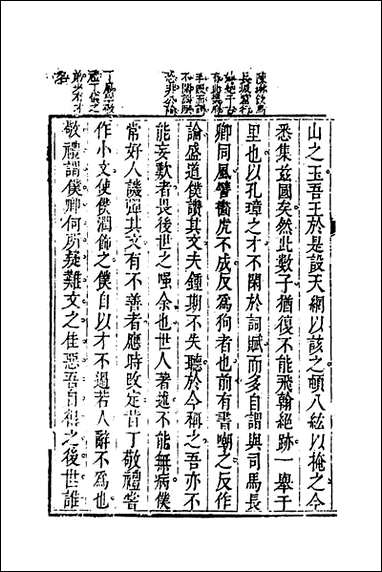 陳琳飲馬
長城窟行
山之玉吾王於是設天網以該之頓八紘以掩之今
悉集茲國矣然此數子猶復不能飛翰絕跡一舉千
里也以孔璋之才不閑於詞賦而多自謂與司馬長
卿同風譬畫虎不成反爲狗者也前有書嘲之反作
論盛道僕讚其文夫鍾期不失聽於今稱之吾亦不
能妄歎者畏後世之嗤余也世人著述不能無病僕
常好人譏彈其文有不善者應時改定昔丁敬禮嘗
作小文使僕潤飾之僕自以才不過若人辭不爲也
敬禮謂僕卿何所疑難文之佳惡吾自得之後世誰